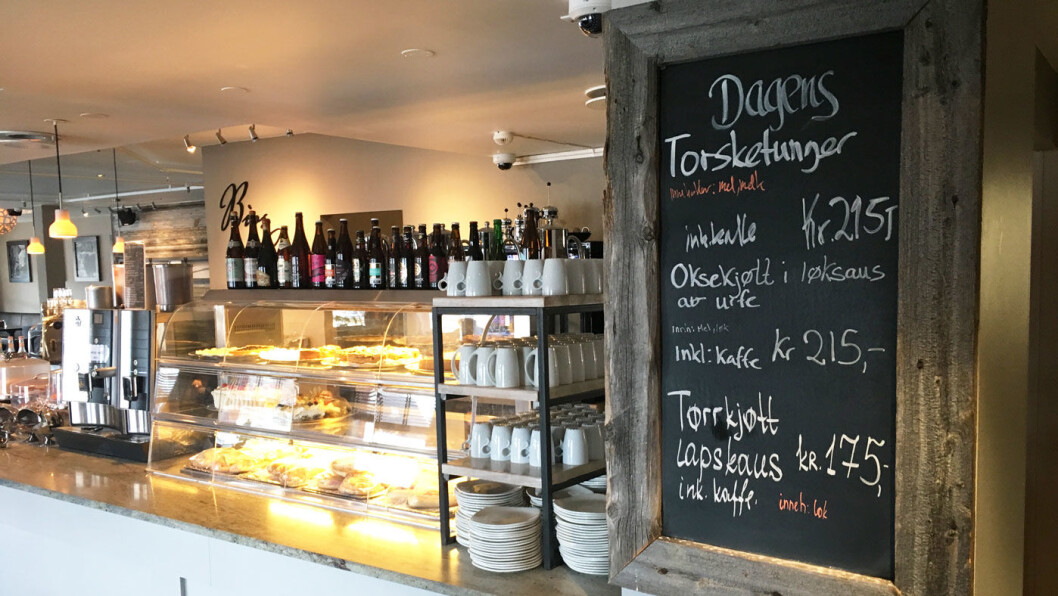 Dagens
Torsketunger
Kr. 215,-
Oksekjøtt i løksaus
av urfe
Inkl: Kaffe Kr 215,-
Tørrkjøtt
Lapskaus KR. 175,-
ink. kaffe. inneh: løk